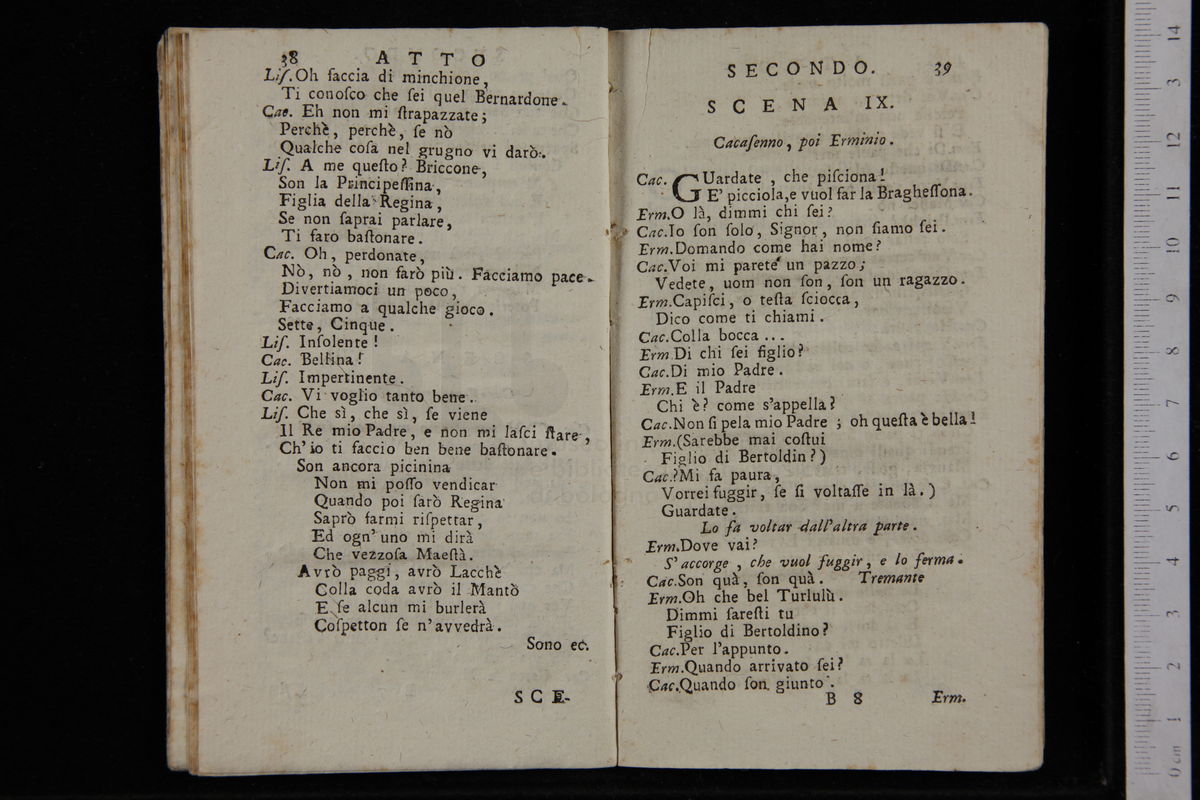 38 ATTO
Liſ. Oh faccia di minchione,
Ti conoſco che ſei quel Bernardone.
Cac. Eh non mi ſtrapazzate;
Perchè, perchè, ſe nò
Qualche coſa nel grugno vi darò.
Liſ. A me queſto? Briccone,
Son la Principeſſina,
Figlia della Regina,
Se non ſaprai parlare,
Ti farò baſtonare.
Cac. Oh, perdonate,
Nò, nò, non farò più. Facciamo pace.
Divertiamoci un poco,
Facciamo a qualche gioco.
Sette, Cinque.
Liſ. Inſolente!
Cac. Bellina!
Liſ. Impertinente.
Cac. Vi voglio tanto bene.
Liſ. Che sì, che sì, ſe viene
Il Re mio Padre, e non mi laſci ſtare,
Ch'io ti faccio ben bene baſtonare.
Son ancora picinina
Non mi poſſo vendicar
Quando poi ſarò Regina
Saprò farmi riſpettar,
Ed ogn'uno mi dirà
Che vezzoſa Maeſtà.
Avrò paggi, avrò Lacchè
Colla coda avrò il Mantò
E ſe alcun mi burlerà
Coſpetton ſe n'avvedrà.
Sono ec.
SCE-
SECONDO. 39
SCENA IX.
Cacaſenno, poi Erminio.
Cac. GUardate, che piſciona!
E' picciola, e vuol far la Bragheſſona.
Erm. O là, dimmi chi ſei?
Cac. Io ſon ſolo, Signor, non ſiamo ſei.
Erm. Domando come hai nome?
Cac. Voi mi parete un pazzo;
Vedete, uom non ſon, ſon un ragazzo.
Erm. Capiſci, o teſta ſciocca,
Dico come ti chiami.
Cac. Colla bocca...
Erm Di chi ſei figlio?
Cac. Di mio Padre.
Erm. E il Padre
Chi è? come s'appella?
Cac. Non ſi pela mio Padre; oh queſta è bella!
Erm. (Sarebbe mai coſtui
Figlio di Bertoldin?)
Cac.? Mi fa paura,
Vorrei fuggir, ſe ſi voltaſſe in là.)
Guardate.
Lo fa voltar dall'altra parte.
Erm. Dove vai?
S'accorge, che vuol fuggir, e lo ferma.
Cac. Son quà, ſon quà. Tremante
Erm. Oh che bel Turlulù.
Dimmi ſareſti tu
Figlio di Bertoldino?
Cac. Per l'appunto.
Erm. Quando arrivato ſei?
Cac. Quando ſon giunto.
B 8 Erm.